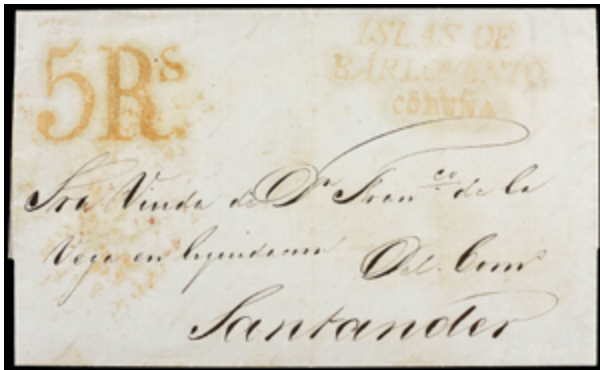 5 Rs
ISLAS DE
BARLOVENTO
CORUÑA
Sra Viuda de Dn Franco de la
Vega en liquidacion
Del Como
Santander